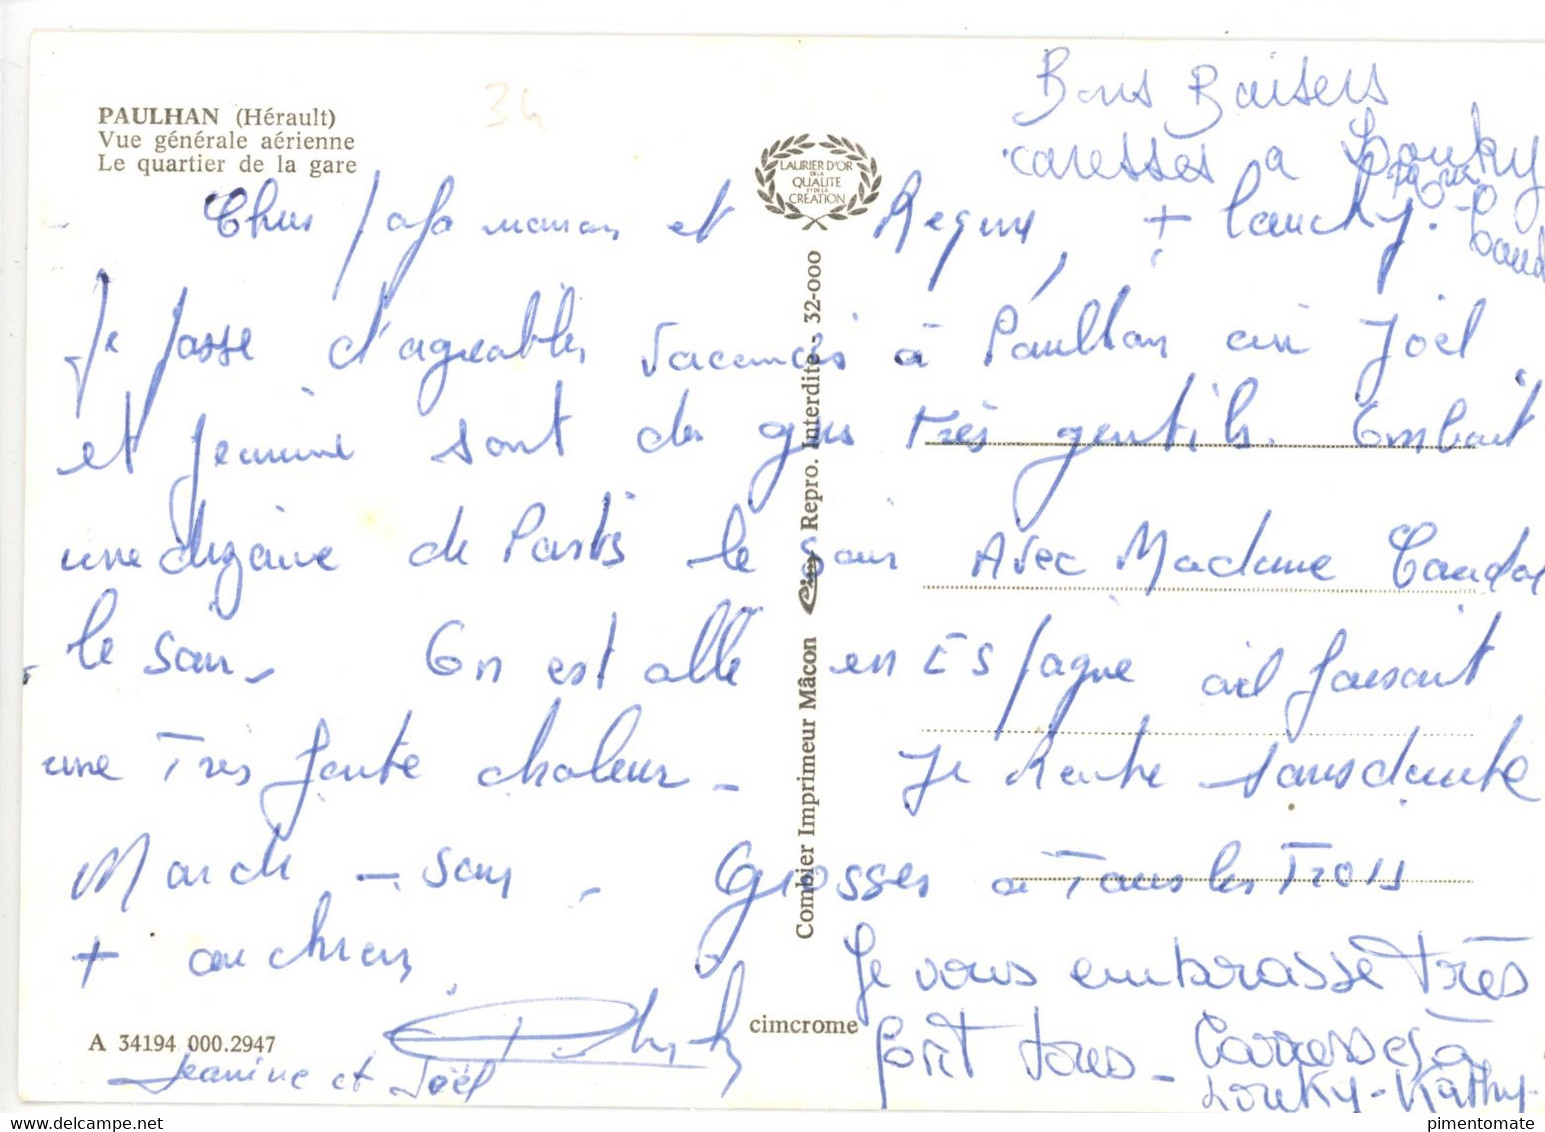 PAULHAN (Hérault)
Vue générale aérienne
Le quartier de la gare
34
Bons Baisers
caresses a Louky
LAURIER D'OR
DE LA
QUALITÉ
ET DE LA
CRÉATION
Chers papa maman et Regine, + Loucky.
Je passe d'agreables vacances à Paulhan Joël
et Jeanine sont des gens très gentils. On boit
une dizaine de Pastis le soir Avec Madame
le soir. On est allé en Espagne il faisait
une Très forte chaleur - Je Rentre sans doute
Mardi - soir - Grosses a Tous les Trois
+ au chien
Je vous embrasse très
fort tous - Carresses à
Louky - Kathy.
Jeanine et Joël
Combier Imprimeur Mâcon Cim Repro. Interdite - 32-000
cimcrome
A 34194 000.2947
pimentomate